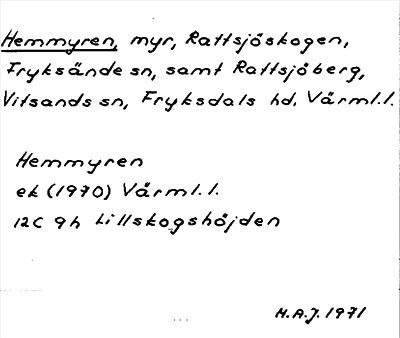 Hemmyren, myr, Rattsjöskogen,
Fryksände sn, samt Rattsjöberg,
Vitsands sn, Fryksdals hd, Värml.l.
Hemmyren
ek (1970) Värml.l.
12C 9h Lillskogshöjden
H.A.J. 1971